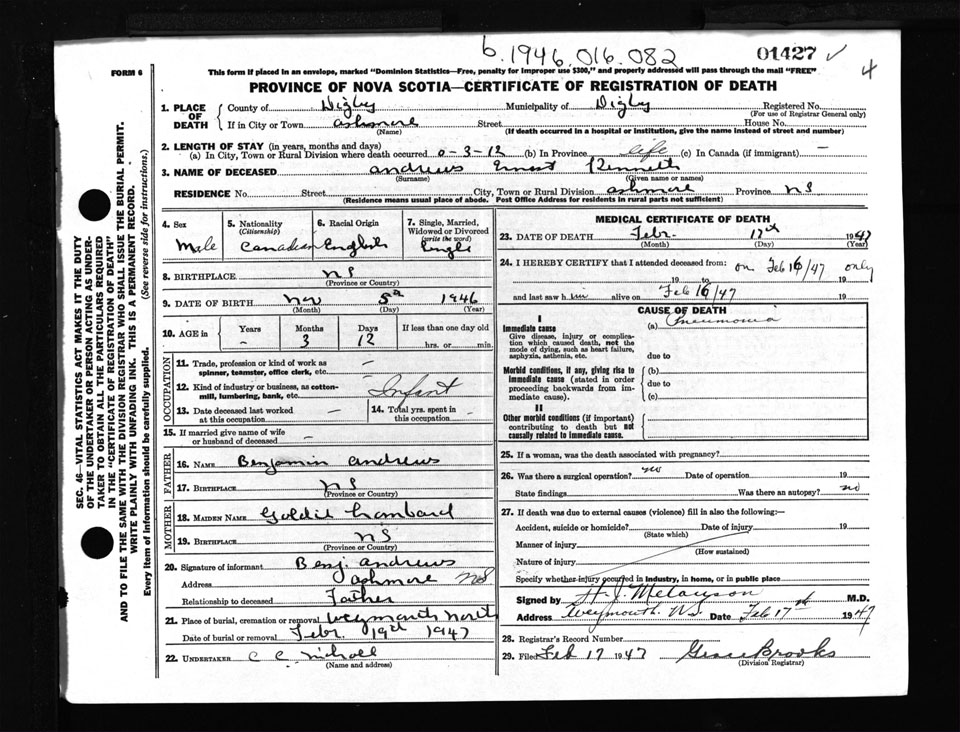 b. 1946.016.082
01427 ✓
4
FORM 6
This form if placed in an envelope, marked "Dominion Statistics—Free, penalty for improper use $300," and properly addressed will pass through the mail "FREE"
PROVINCE OF NOVA SCOTIA—CERTIFICATE OF REGISTRATION OF DEATH
SEC. 46—VITAL STATISTICS ACT MAKES IT THE DUTY
OF THE UNDERTAKER OR PERSON ACTING AS UNDER-
TAKER TO OBTAIN ALL THE PARTICULARS REQUIRED
IN THE "CERTIFICATE OF REGISTRATION OF DEATH"
AND TO FILE THE SAME WITH THE DIVISION REGISTRAR WHO SHALL ISSUE THE BURIAL PERMIT.
WRITE PLAINLY WITH UNFADING INK. THIS IS A PERMANENT RECORD.
Every item of information should be carefully supplied. (See reverse side for instructions.)
1. PLACE OF DEATH
County of Digby Municipality of Digby Registered No.
(For use of Registrar General only)
If in City or Town ashmore Street House No.
(Name) (If death occurred in a hospital or institution, give the name instead of street and number)
2. LENGTH OF STAY (in years, months and days)
(a) In City, Town or Rural Division where death occurred 0-3-12 (b) In Province life (c) In Canada (if immigrant) —
3. NAME OF DECEASED andrews Ernest Kenneth
(Surname) (Given name or names)
RESIDENCE No. Street City, Town or Rural Division ashmore Province NS
(Residence means usual place of abode. Post Office Address for residents in rural parts not sufficient)
4. Sex
Male
5. Nationality
(Citizenship)
Canadian
6. Racial Origin
English
7. Single, Married,
Widowed or Divorced
(write the word)
Single
8. BIRTHPLACE NS
(Province or Country)
9. DATE OF BIRTH Nov 5th 1946
(Month) (Day) (Year)
10. AGE in
Years Months Days If less than one day old
- 3 12 hrs. or min.
OCCUPATION
11. Trade, profession or kind of work as
spinner, teamster, office clerk, etc. —
12. Kind of industry or business, as cotton-
mill, lumbering, bank, etc. Infant
13. Date deceased last worked
at this occupation —
14. Total yrs. spent in
this occupation —
15. If married give name of wife
or husband of deceased —
FATHER
16. NAME Benjamin andrews
17. BIRTHPLACE NS
(Province or Country)
MOTHER
18. MAIDEN NAME Goldie Lombard
19. BIRTHPLACE NS
(Province or Country)
20. Signature of informant Benj. andrews
Address ashmore NS
Relationship to deceased Father
21. Place of burial, cremation or removal Weymouth North
Date of burial or removal Febr. 19th 1947
22. UNDERTAKER C C Nicholl
(Name and address)
MEDICAL CERTIFICATE OF DEATH
23. DATE OF DEATH Febr. 17th 1947
(Month) (Day) (Year)
24. I HEREBY CERTIFY that I attended deceased from: on Feb 16/47 only
19 to 19
and last saw him alive on Feb 16/47 19
CAUSE OF DEATH
I
Immediate cause
Give disease, injury or complica-
tion which caused death, not the
mode of dying, such as heart failure,
asphyxia, asthenia, etc.
(a) Pneumonia
due to
Morbid conditions, if any, giving rise to
immediate cause (stated in order
proceeding backwards from im-
mediate cause).
(b)
due to
(c)
II
Other morbid conditions (if important)
contributing to death but not
causally related to immediate cause.
25. If a woman, was the death associated with pregnancy?
26. Was there a surgical operation? no Date of operation 19
State findings Was there an autopsy? no
27. If death was due to external causes (violence) fill in also the following:—
Accident, suicide or homicide? Date of injury 19
(State which)
Manner of injury
(How sustained)
Nature of injury
Specify whether injury occurred in industry, in home, or in public place
Signed by H. J. Melanson M.D.
Address Weymouth. N.S. Date Feb 17th 1947
28. Registrar's Record Number
29. Filed Feb 17 1947 Grace Brooks
(Division Registrar)